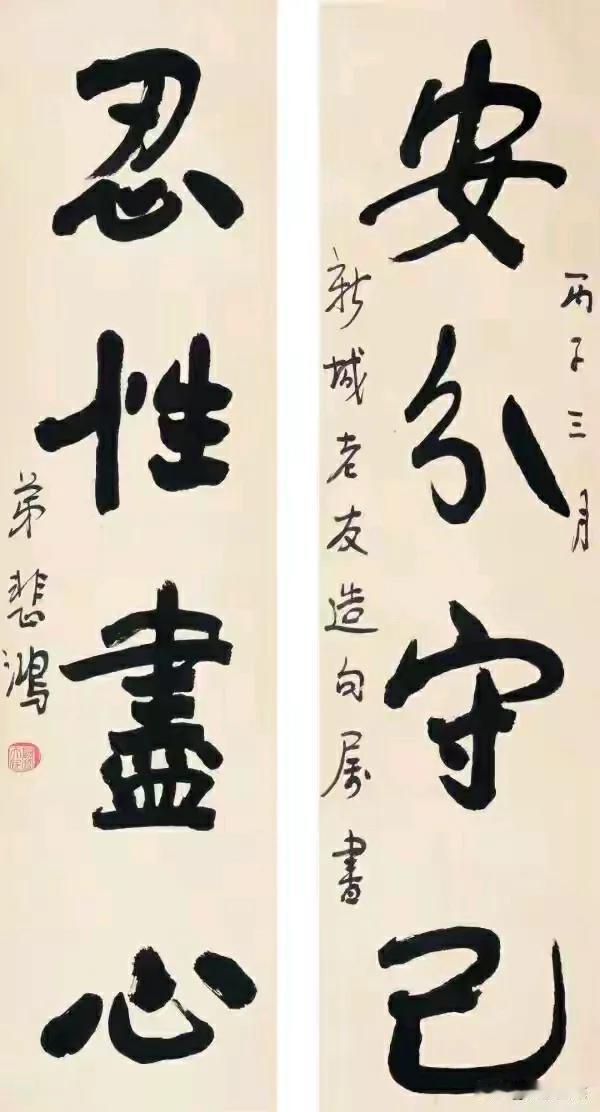 安分守己
丙子三月
新城老友造句属書
忍性盡心
弟悲鴻